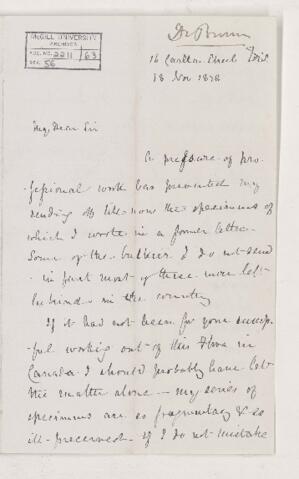 Dr Brown
McGILL UNIVERSITY
ARCHIVES
ACC. NO. 2211 / 63
REF. 56
16 Carlton Street Edin
18 Nov 1878
My Dear Sir
A pressure of pro-
-fessional work has prevented my
sending off till now the specimens of
which I wrote in a former letter.
Some of the bulkier I do not send
- in fact most of these were left
behind in the country
If it had not been for your success-
ful working out of this flora in
Canada I should probably have left
the matter alone - my series of
specimens are so fragmentary & so
ill-preserved. If I do not mistake